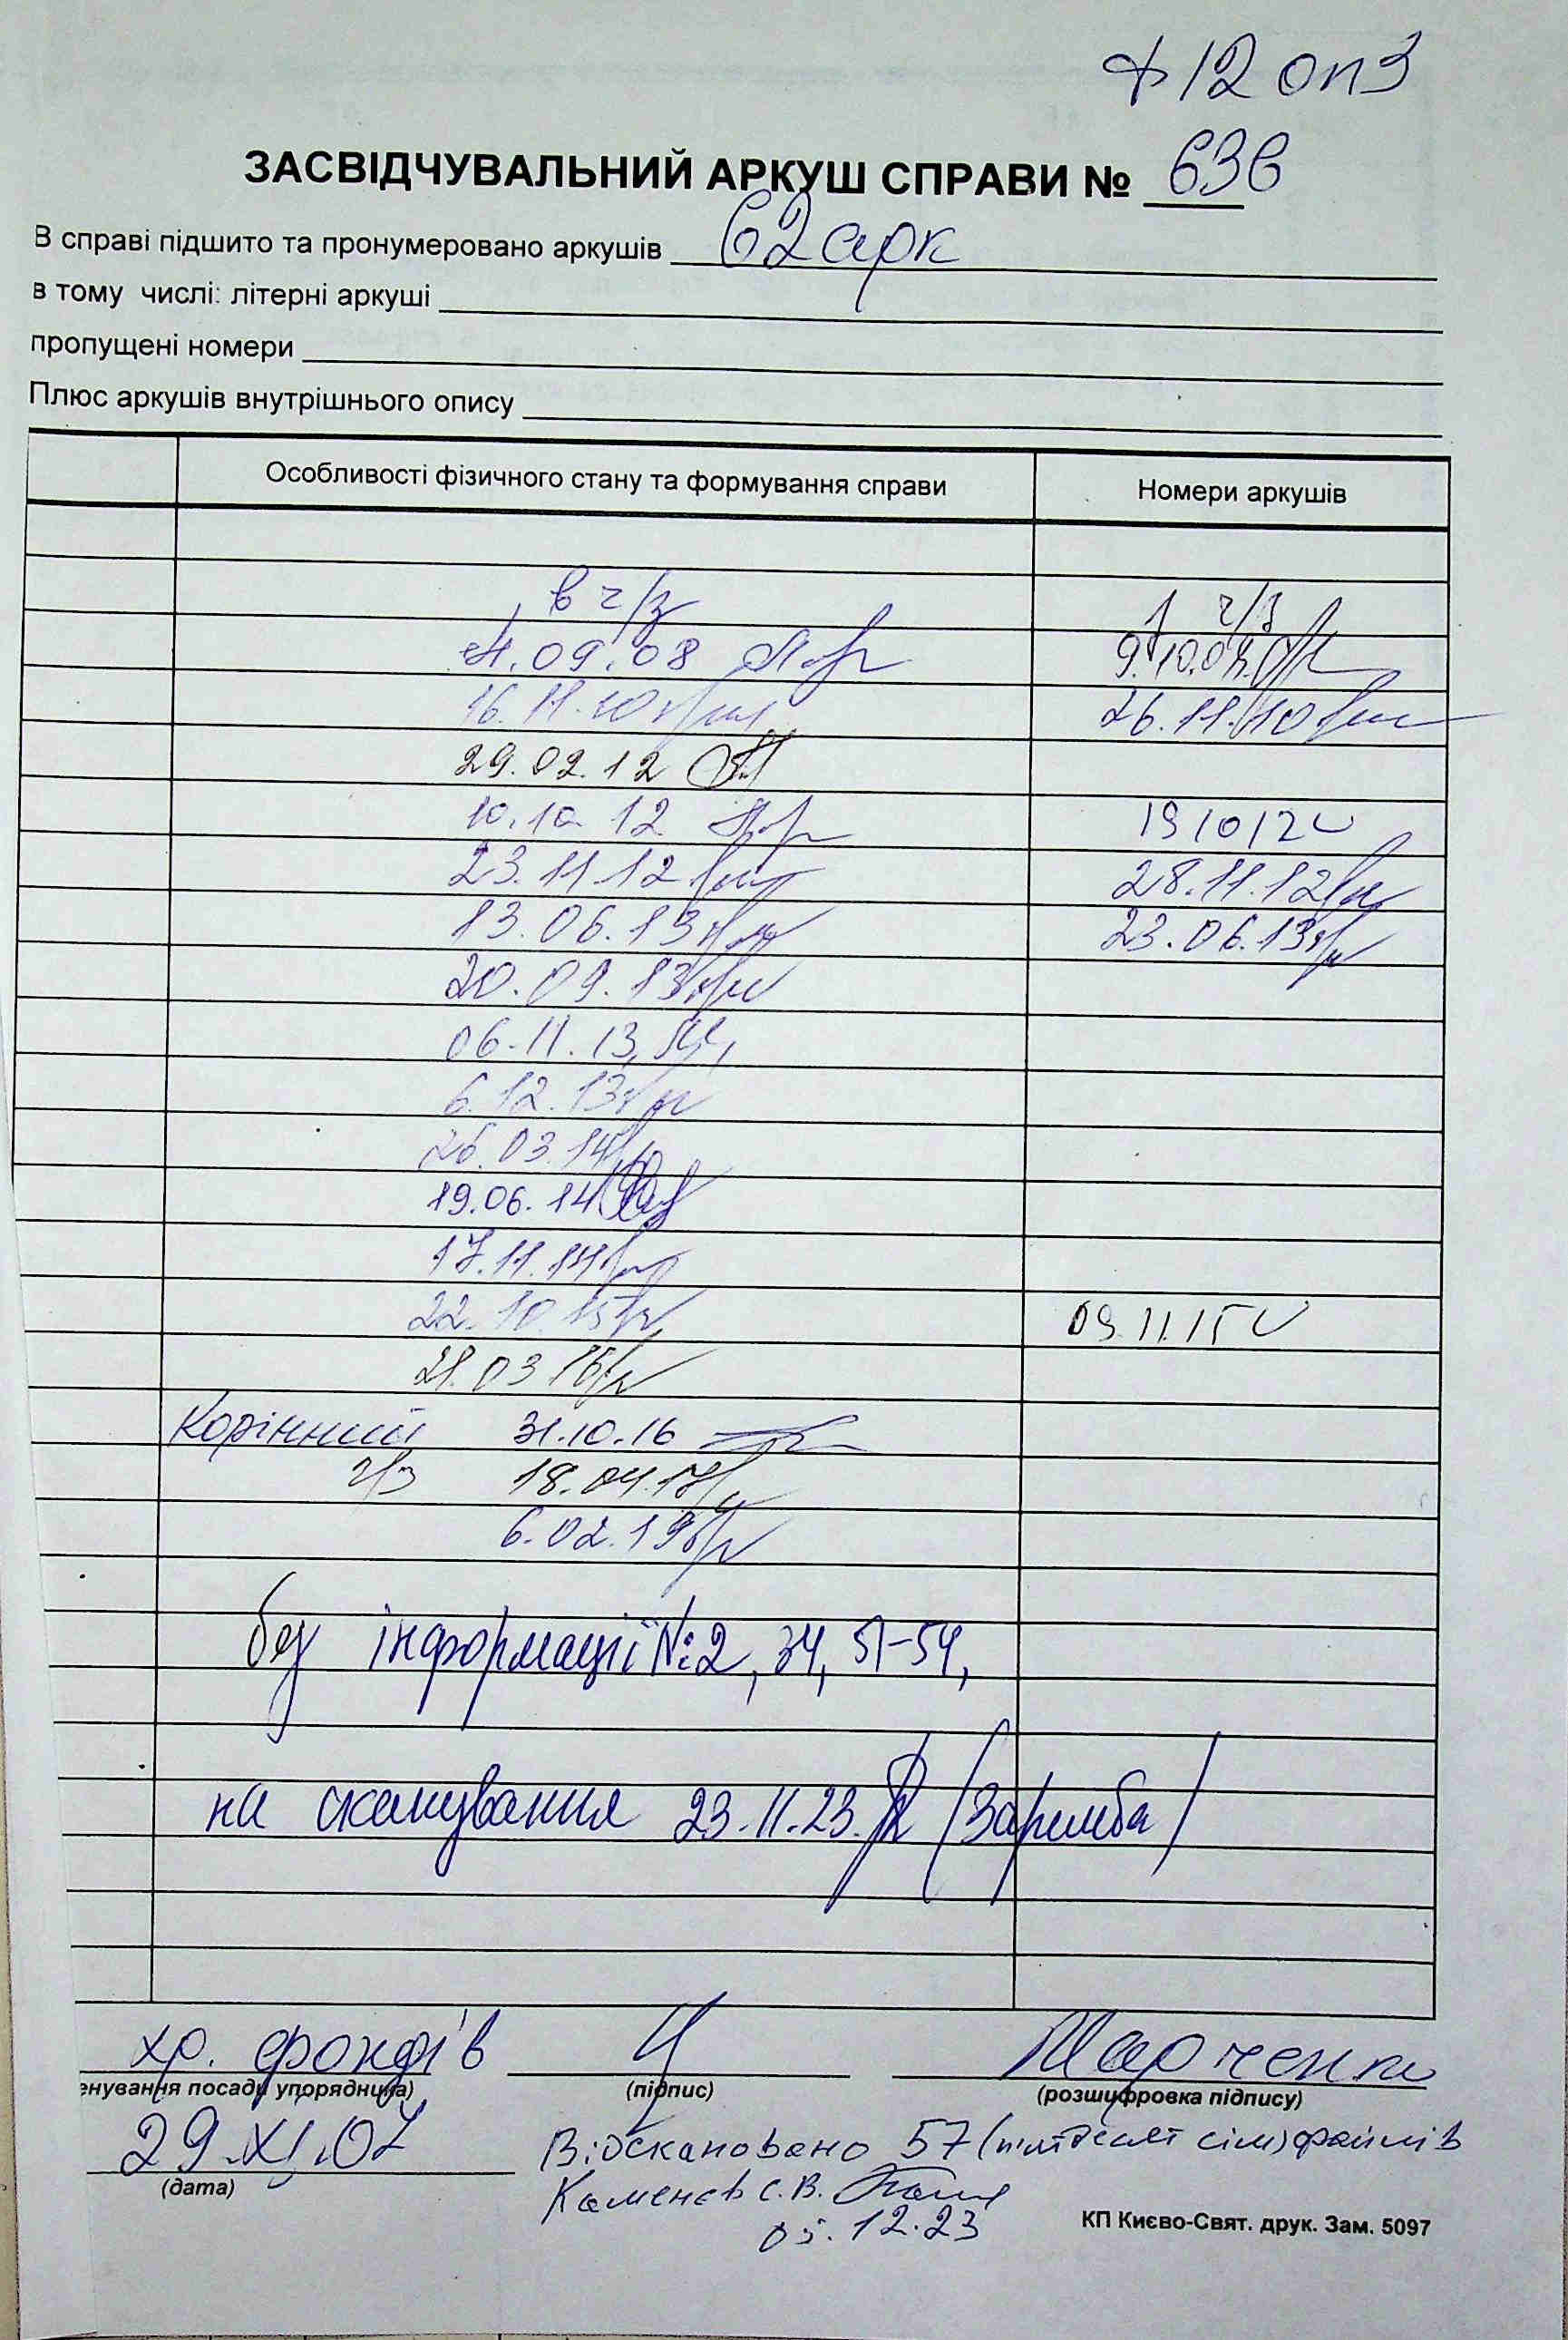 ф 12 оп 3
ЗАСВІДЧУВАЛЬНИЙ АРКУШ СПРАВИ № 63в
В справі підшито та пронумеровано аркушів 62 арк
в тому числі: літерні аркуші
пропущені номери
Плюс аркушів внутрішнього опису
Особливості фізичного стану та формування справи Номери аркушів
в ч/з 1 ч/з
.09.08 9.10.08
16.11.10 26.11.10
29.02.12
10.10.12 19/0/12
23.11.12 28.11.12
13.06.13 23.06.13
20.09.13
06.11.13
6.12.13
26.03.14
19.06.14
17.11.14
22.10.15 09.11.15
21.03.16
Корінний 31.10.16
ч/з 18.04.17
6.02.19
без інформації №: 2, 34, 51-54,
на сканування 23.11.23. /Заремба/
хр. фондів Марченко
енування посади упорядника) (підпис) (розшифровка підпису)
29.XI.07
(дата)
Відскановано 57 (п'ятдесят сім) файлів
Каменєв С.В.
05.12.23
КП Києво-Свят. друк. Зам. 5097